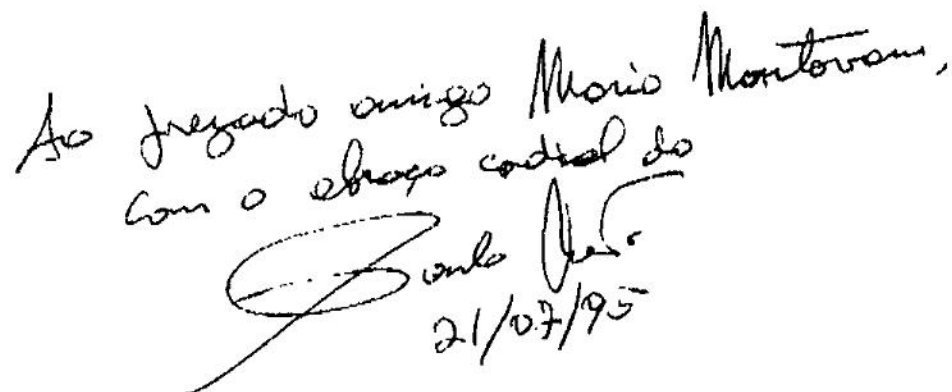 Ao prezado amigo Mario Mantovani,
com o abraço cordial do
Paulo
21/07/95